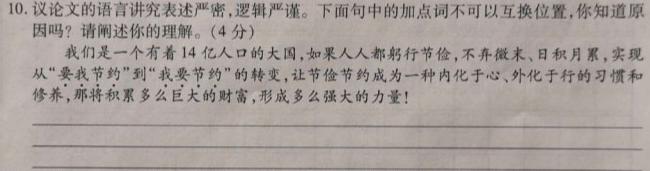 10. 议论文的语言讲究表述严密,逻辑严谨。下面句中的加点词不可以互换位置,你知道原
因吗？请阐述你的理解。(4 分)
我们是一个有着 14 亿人口的大国,如果人人都躬行节俭,不弃微末、日积月累,实现
从“要我节约”到“我要节约”的转变,让节俭节约成为一种内化于心、外化于行的习惯和
修养,那将积累多么巨大的财富,形成多么强大的力量！